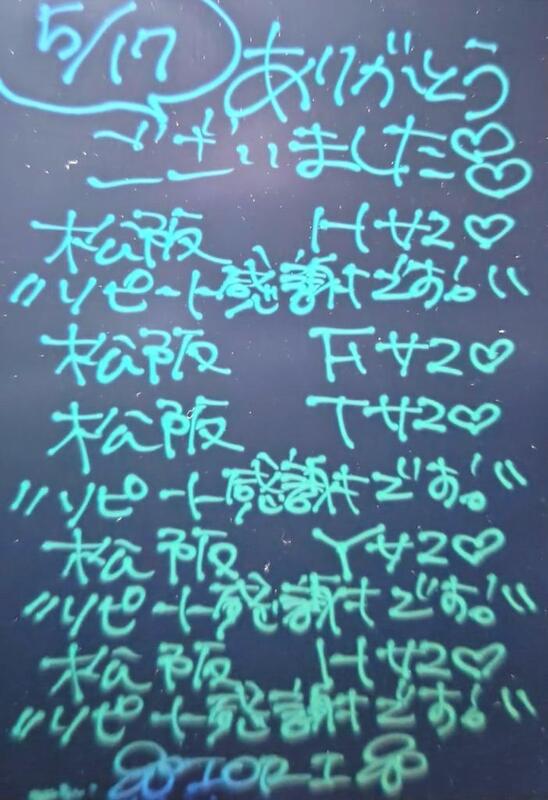 5/17
ありがとう
ございました♡♡
松阪 Hサン♡
"リピート感謝です!"
松阪 Fサン♡
松阪 Tサン♡
"リピート感謝です!"
松阪 Yサン♡
"リピート感謝です!"
松阪 Hサン♡
"リピート感謝です!"
IORI